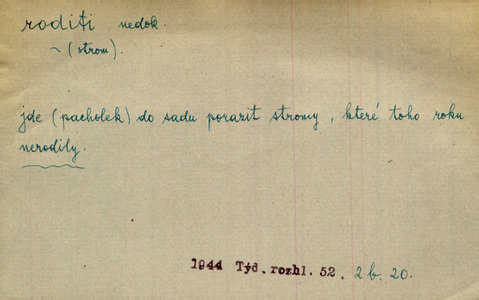 roditi nedok.
~ (strom).
jde (pacholek) do sadu porazit stromy, které toho roku
nerodily.
1944 Týd. rozhl. 52. 2 b. 20.